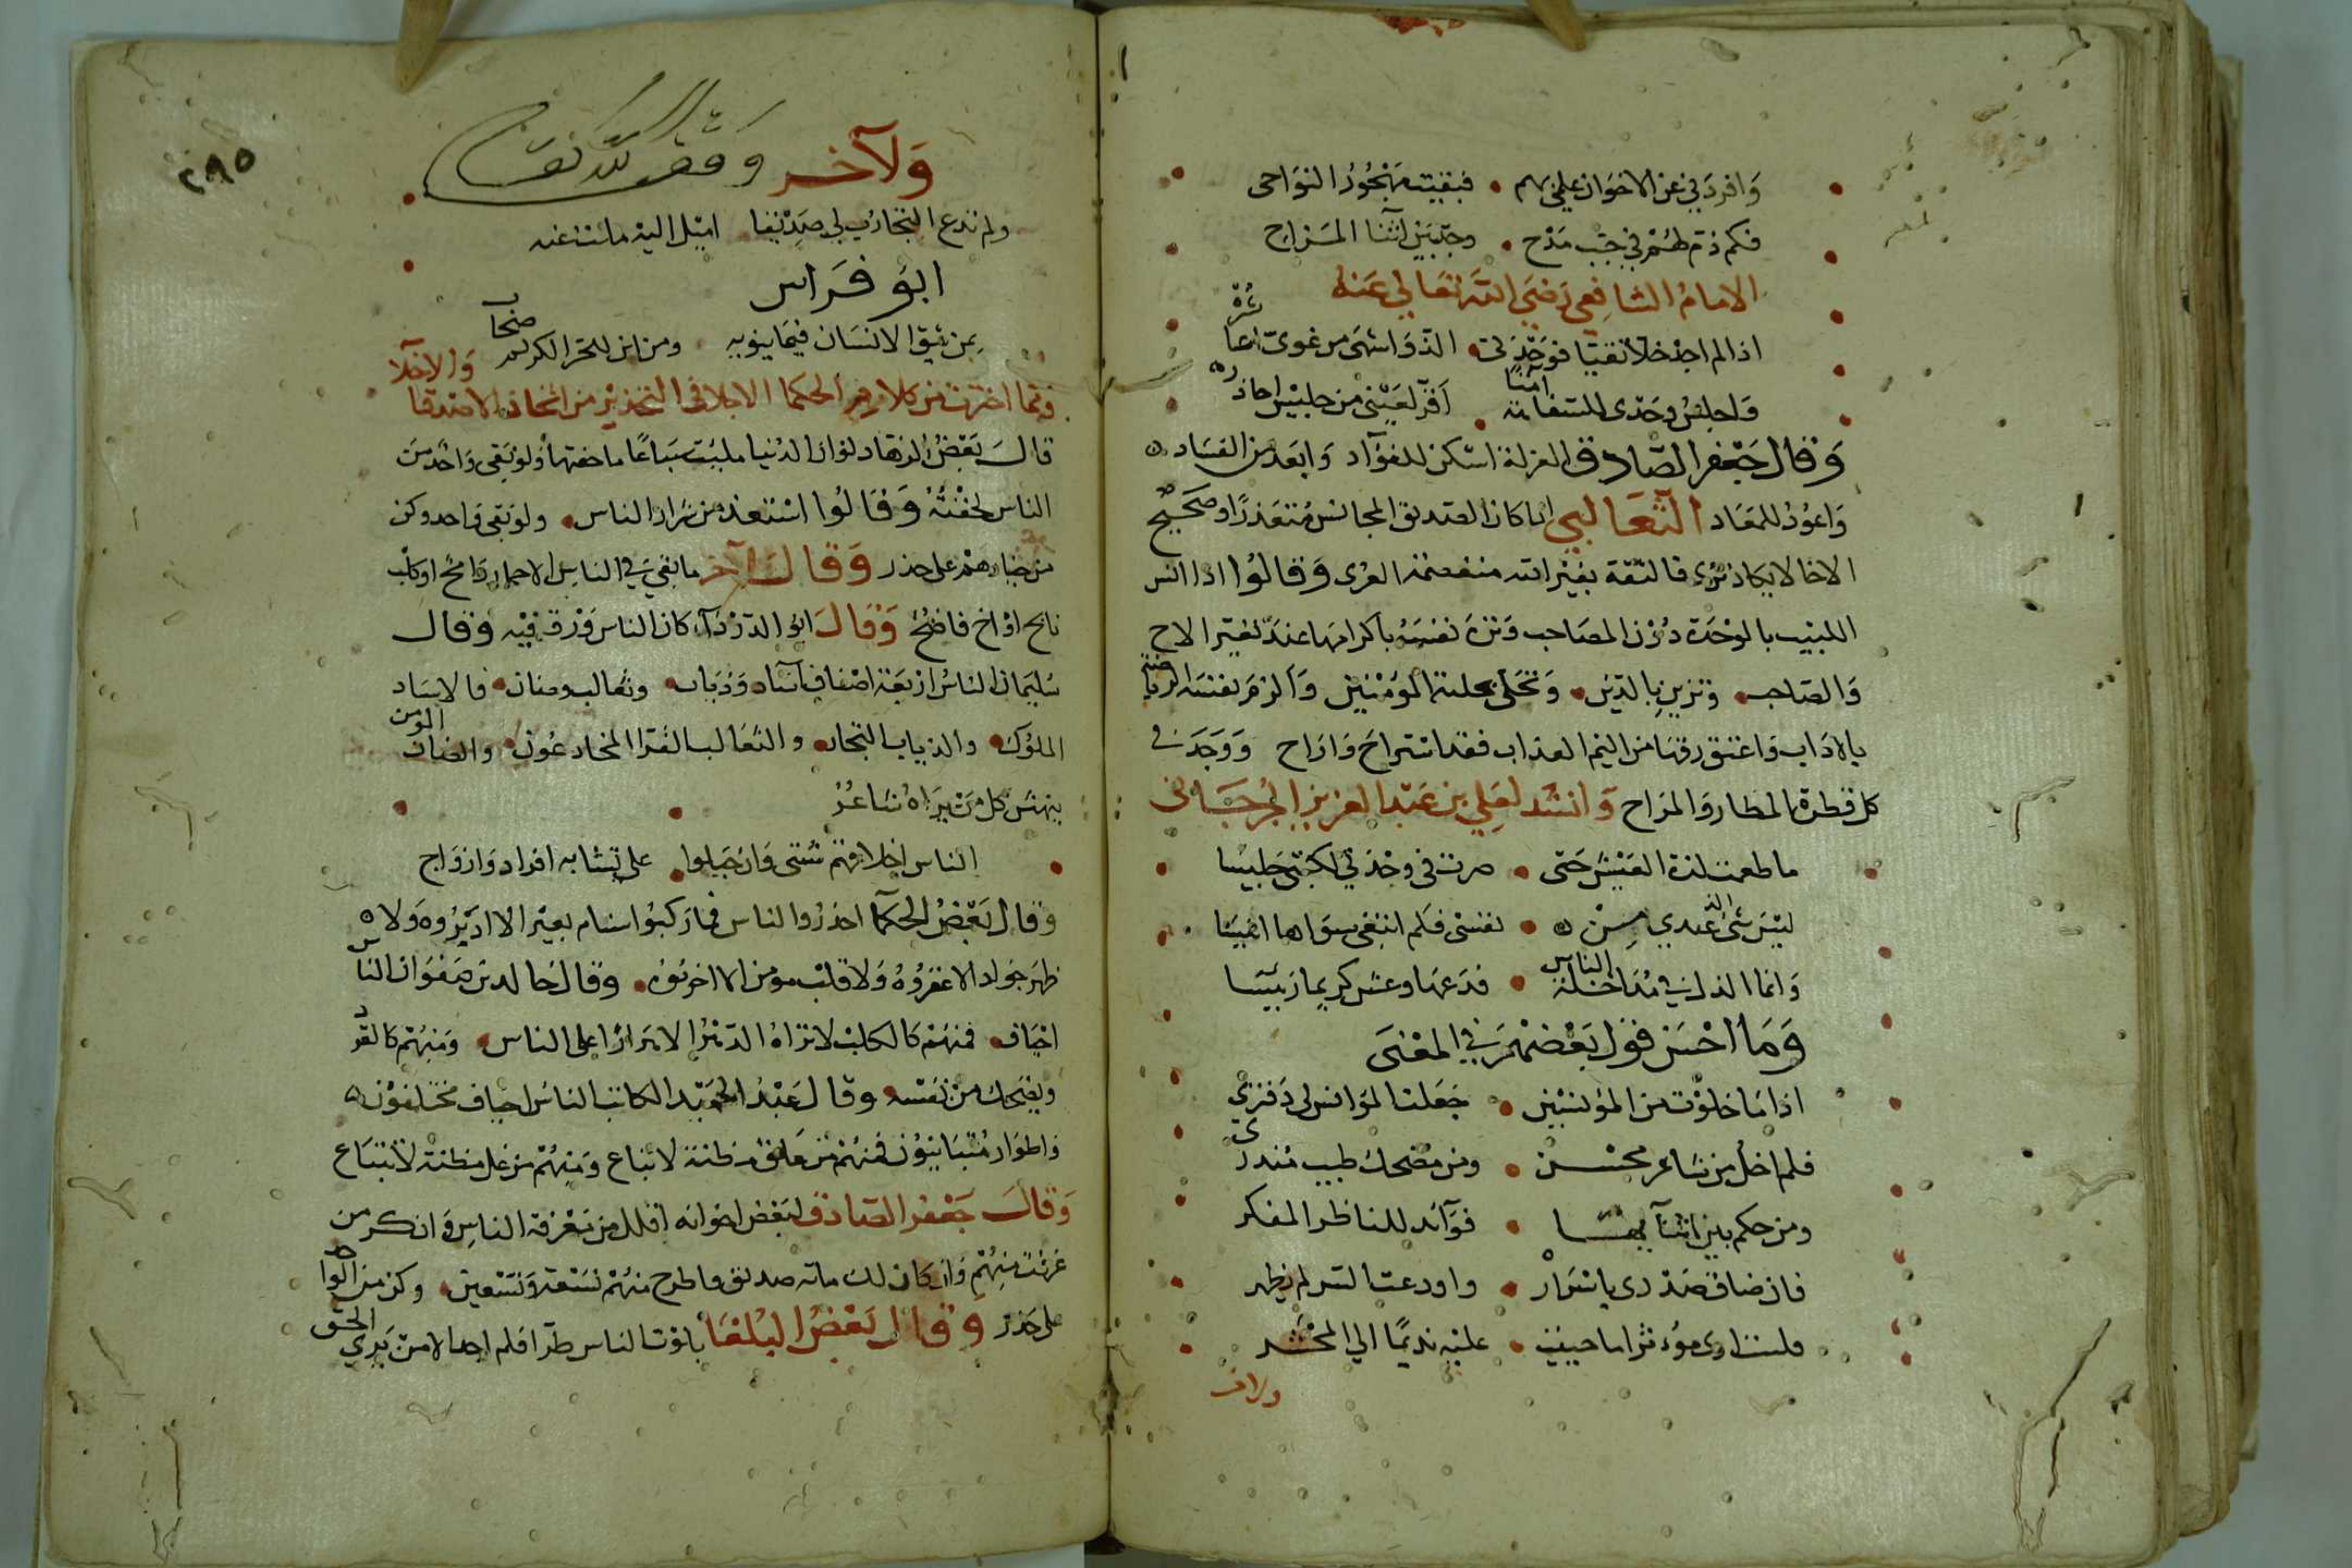 وافردني عن الاخوان علمي بهم • فبقيت مهجور النواحي
فكم ذم لهم في جنب مدح • وجد بين اثناء المزاح
الامام الشافعي رضي الله تعالى عنه
اذا لم اجد خلا تقيا فوحدتي • الذ واشهى من غوي اعاشره
واجلس وحدي للسفاهة آمنا • اقر لعيني من جليس احاذره
وقال جعفر الصادق العزلة اسكن للفؤاد وابعد من الفساد
واعود للمعاد الثعالبي اذا كان الصديق المجانس متعذرا وصحيح
الاخا لا يكاد يرى فالثقة بغير الله منفصمة العرى وقالوا اذا انس
اللبيب بالوحدة دون المصاحب ونزه نفسه باكرامها عند تغير الاخ
والصاحب • وتزين بالدين • وتحلى بحلية المؤمنين والزم نفسه الرياضة
بالاداب واعتق رقها من اليم العذاب فقد استراح واراح ووجد في
كل قطرة المطار والمراح وانشد لعلي بن عبد العزيز الجرجاني
ما طعمت لذة العيش حتى • صرت في وحدتي لكتبي جليسا
ليس شئ عندي الذ من • نفسي فلم ابتغي سواها انيسا
وانما الذل في مداخلة الناس • فدعها وعش كريما رئيسا
وما احسن قول بعضهم في المعنى
اذا ما خلوت من المؤنسين • جعلت المؤانس لي دفتري
فلم اخل من شاعر محسن • ومن مضحك طيب مندري
ومن حكم بين اثنائها • فوائد للناظر المفكر
فان ضاق صدري باسراره • واودعت السر لم يظهر
فلست ارى مؤثرا ما حييت • عليه نديما الي المحشر
ولاخر
٢٩٥
ولآخر وقف لله تعالى
ولم تدع التجارب لي صديقا • اميل اليه ملت عنه
ابو فراس
بمن يثق الانسان فيما ينوبه • ومن اين للحر الكريم صحاب
ومما اخترت من كلام الحكما الاجلا في التحذير من اتخاذ الاصدقا والاخلا
قال بعض الزهاد لو ان الدنيا مليت سباعا ما خفتها ولو بقي واحد من
الناس لخفته وقالوا استعذ من شرار الناس • ولو بقي واحد وكن
من خيارهم على حذر وقال آخر ما بقي في الناس الا حمار رامح او كلب
نابح او اخ فاضح وقال ابو الدرداء كان الناس ورق فيه وقال
سليمان الناس اربعة اصناف آساد وذياب • وثعالب وضان • فالاساد
الملوك • والذياب التجار • والثعالب القرا المخادعون • والضان المؤمن
ينهش كل من يراه شاعر
الناس اخلاقهم شتى وان جبلوا • على تشابه افراد وازواج
وقال بعض الحكما احذروا الناس فما ركبوا سنام بعير الا ادبروه ولا
ظهر جواد الا عقروه ولا قلب مومن الا اخربوه • وقال خالد بن صفوان الناس
اخياف • فمنهم كالكلب لا تراه الدهر الا هرارا على الناس • ومنهم كالقرد
ويضحك من نفسه • وقال عبد الحميد الكاتب الناس اخياف مختلفون
واطوار متباينون فمنهم من علق مظنة لا يباع ومنهم من غل مظنة لا يبتاع
وقال جعفر الصادق لبعض اخوانه اقلل من معرفة الناس وانكر من
عرفت منهم وان كان لك مائه صديق فاطرح منهم تسعة وتسعين • وكن من الواحد
على حذر وقال بعض البلغا بلوت الناس طرا فلم اجد الا من يري الحق